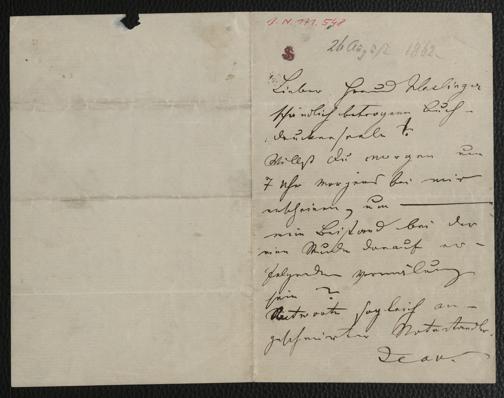 I.N. 171.548
26 August 1862.
Lieber Freund Haslinger
schändlich betrogene Buch-
druckerseele!
Willst Du morgen um
7 Uhr Morgens bei mir
erscheinen, um
mein Beistand bei der
eine Stunde darauf er-
folgenden Vermälung
sein?
Antworte sogleich an-
geschmierter
Jean.